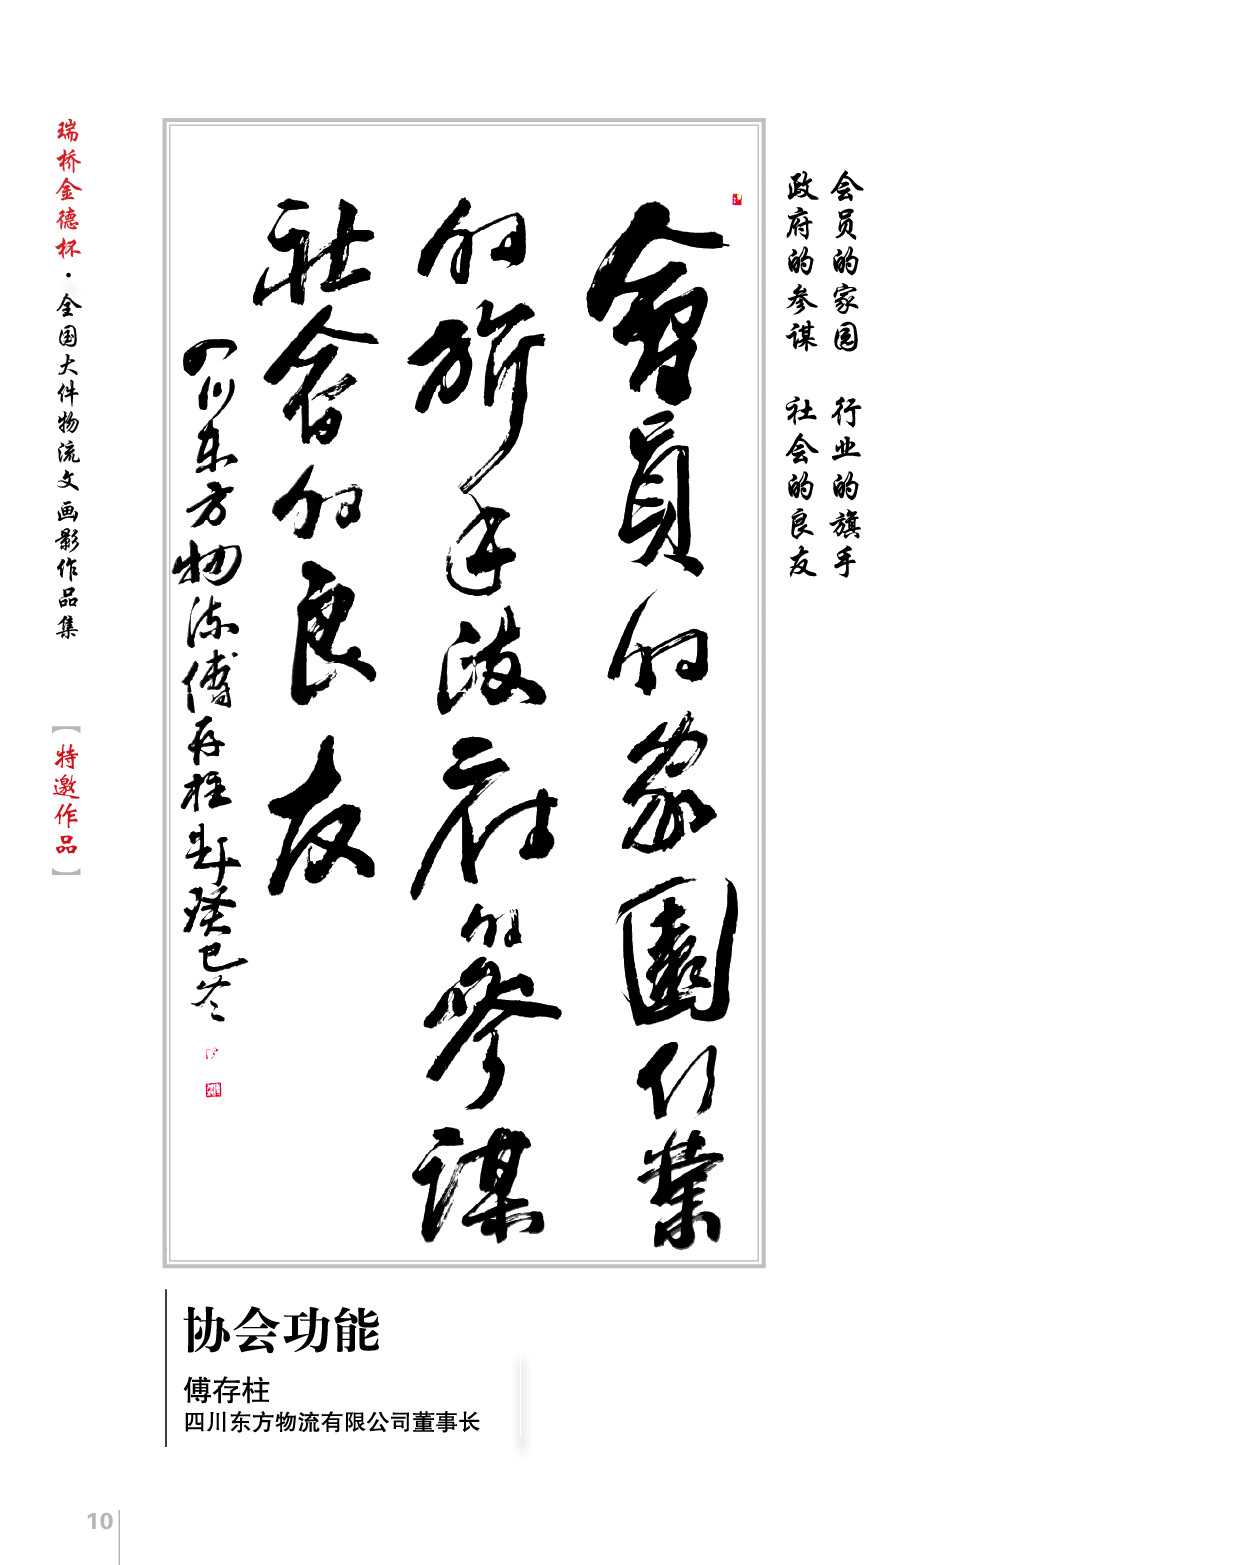 瑞桥金德杯·全国大件物流文画影作品集
【特邀作品】
會員的家園行業
的旗手政府的參謀
社會的良友
四川东方物流傅存柱书癸巳冬
会员的家园 行业的旗手
政府的参谋 社会的良友
协会功能
傅存柱
四川东方物流有限公司董事长
10